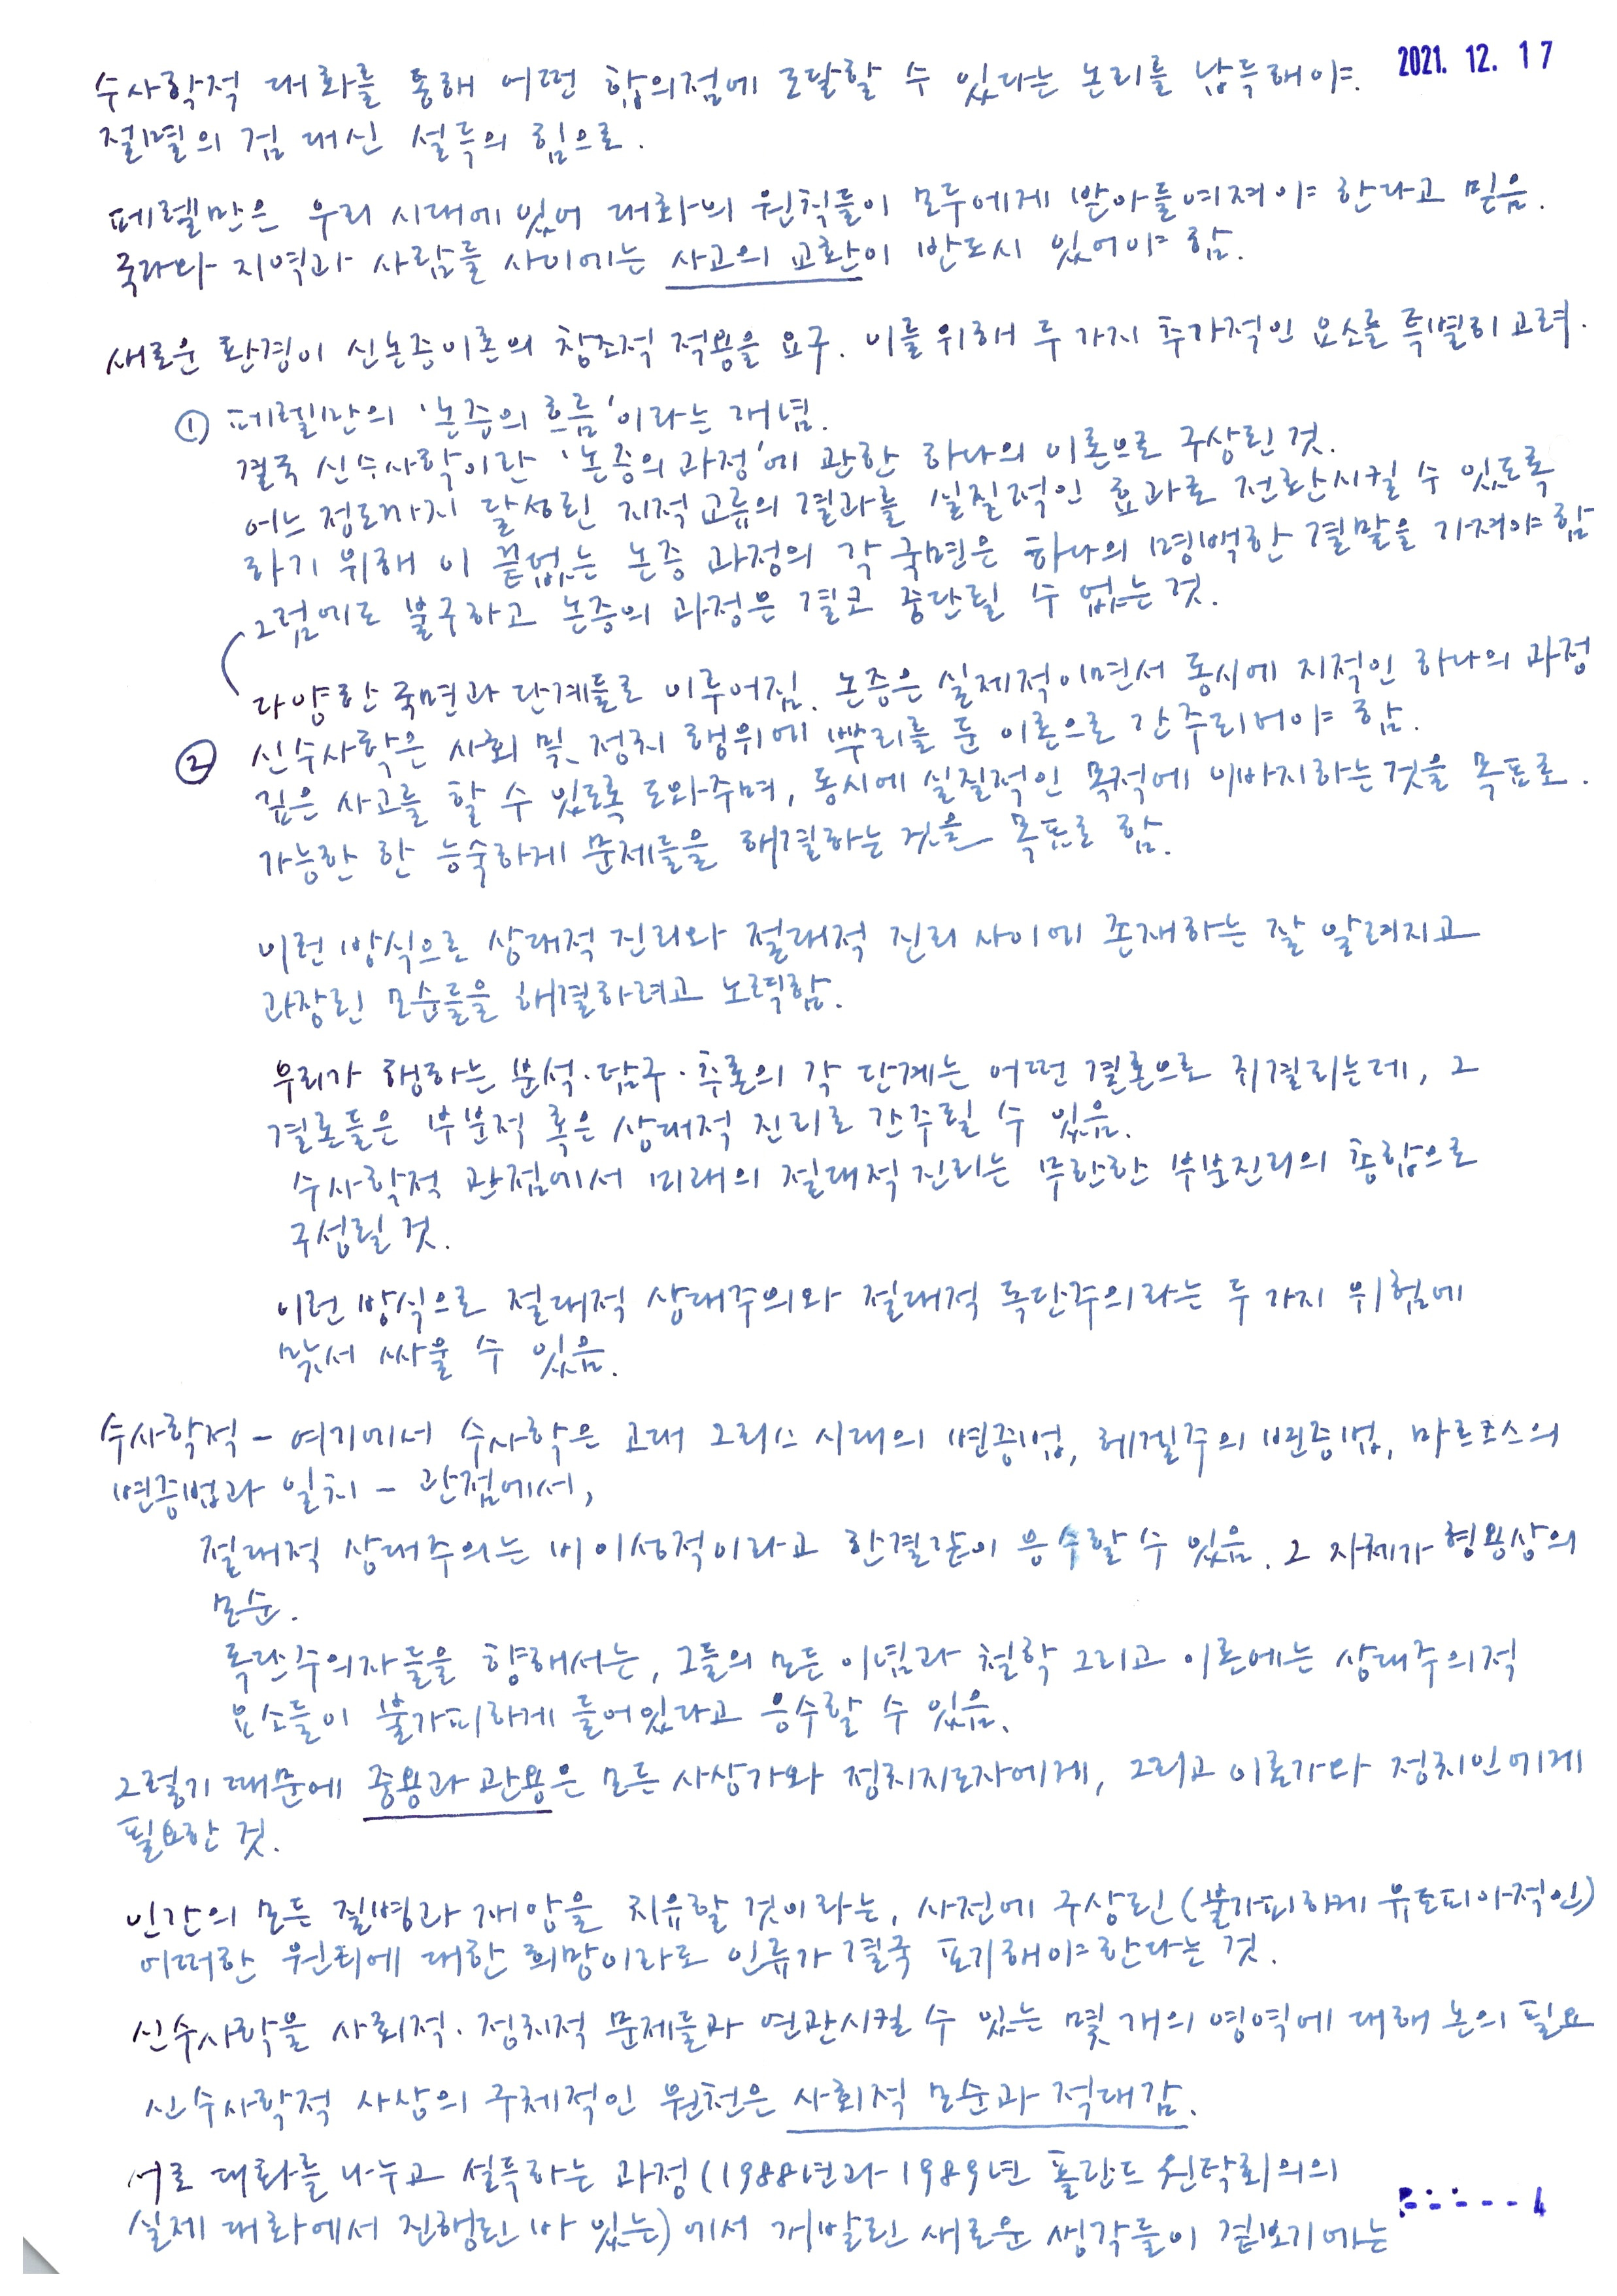 2021. 12. 17
수사학적 대화를 통해 어떤 합의점에 도달할 수 있다는 논리를 납득해야.
절멸의 검 대신 설득의 힘으로.
페렐만은 우리 시대에 있어 대화의 원칙들이 모두에게 받아들여져야 한다고 믿음.
국가와 지역과 사람들 사이에는 사고의 교환이 반드시 있어야 함.
새로운 환경이 신논증이론의 창조적 적용을 요구. 이를 위해 두 가지 추가적인 요소를 특별히 고려.
① 페렐만의 '논증의 흐름'이라는 개념.
결국 신수사학이란 '논증의 과정'에 관한 하나의 이론으로 구상된 것.
어느 정도까지 달성된 지적 교류의 결과를 실질적인 효과로 전환시킬 수 있도록
하기 위해 이 끝없는 논증 과정의 각 국면은 하나의 명백한 결말을 가져야 함
그럼에도 불구하고 논증의 과정은 결코 중단될 수 없는 것.
다양한 국면과 단계들로 이루어짐. 논증은 실제적이면서 동시에 지적인 하나의 과정
② 신수사학은 사회 및 정치 행위에 뿌리를 둔 이론으로 간주되어야 함.
깊은 사고를 할 수 있도록 도와주며, 동시에 실질적인 목적에 이바지하는 것을 목표로.
가능한 한 능숙하게 문제들을 해결하는 것을 목표로 함.
이런 방식으로 상대적 진리와 절대적 진리 사이에 존재하는 잘 알려지고
과장된 모순들을 해결하려고 노력함.
우리가 행하는 분석·탐구·추론의 각 단계는 어떤 결론으로 귀결되는데, 그
결론들은 부분적 혹은 상대적 진리로 간주될 수 있음.
수사학적 관점에서 미래의 절대적 진리는 무한한 부분진리의 총합으로
구성될 것.
이런 방식으로 절대적 상대주의와 절대적 독단주의라는 두 가지 위험에
맞서 싸울 수 있음.
수사학적 - 여기에서 수사학은 고대 그리스 시대의 변증법, 헤겔주의 변증법, 마르크스의
변증법과 일치 - 관점에서,
절대적 상대주의는 비이성적이라고 한결같이 응수할 수 있음. 그 자체가 형용상의
모순.
독단주의자들을 향해서는, 그들의 모든 이념과 철학 그리고 이론에는 상대주의적
요소들이 불가피하게 들어있다고 응수할 수 있음.
그렇기 때문에 중용과 관용은 모든 사상가와 정치지도자에게, 그리고 이론가와 정치인에게
필요한 것.
인간의 모든 질병과 재앙을 치유할 것이라는, 사전에 구상된 (불가피하게 유토피아적인)
어떠한 원칙에 대한 희망이라도 인류가 결국 포기해야 한다는 것.
신수사학을 사회적·정치적 문제들과 연관시킬 수 있는 몇 개의 영역에 대해 논의 필요
신수사학적 사상의 구체적인 원천은 사회적 모순과 적대감.
서로 대화를 나누고 설득하는 과정(1988년과 1989년 폴란드 원탁회의의
실제 대화에서 진행된 바 있는)에서 개발된 새로운 생각들이 겉보기에는